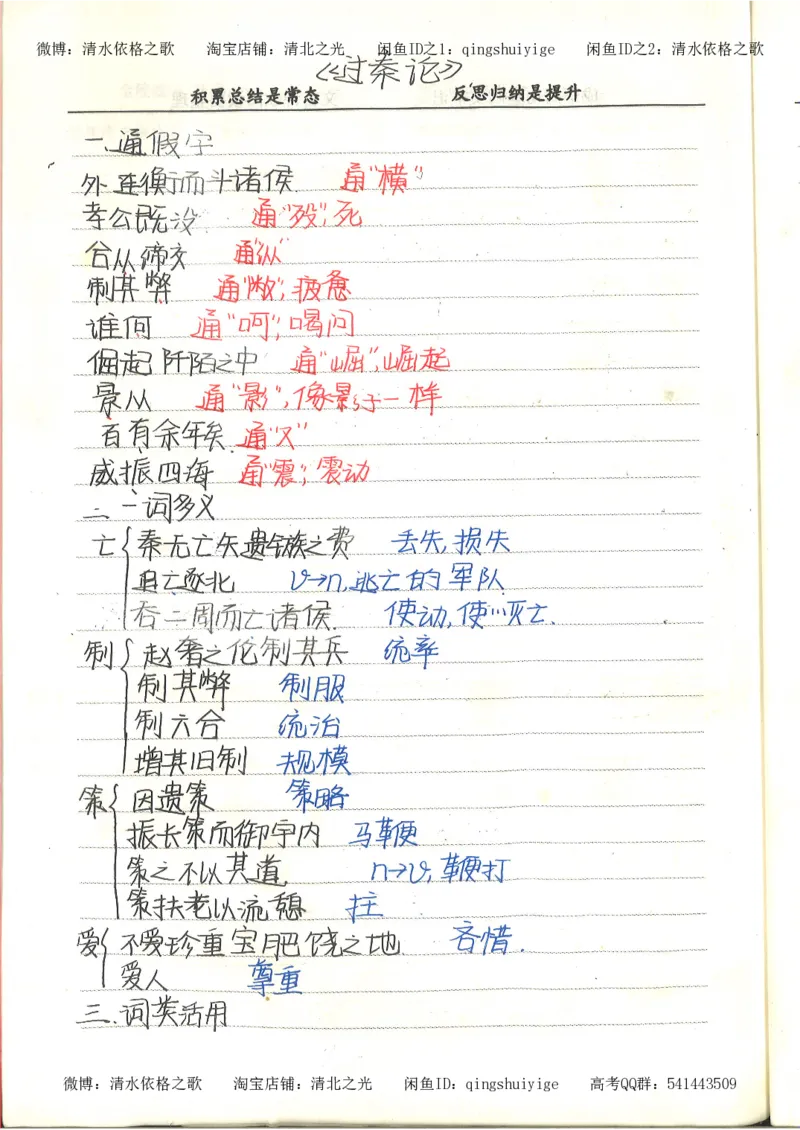 微博：清水依格之歌 淘宝店铺：清北之光 闲鱼ID之1：qingshuiyige 闲鱼ID之2：清水依格之歌
《过秦论》
积累总结是常态 反思归纳是提升
一.通假字
外连衡而斗诸侯. 通"横"
孝公既没 通"殁",死
合从缔交 通"纵"
制其弊 通"敝",疲惫
谁何 通"呵",喝问
倔起阡陌之中 通"崛",崛起
景从 通"影",像影子一样
百有余年矣 通"又"
威振四海 通"震",震动
二.一词多义
亡 秦无亡矢遗镞之费 丢失,损失
追亡逐北 v→n,逃亡的军队
吞二周而亡诸侯. 使动,使…灭亡.
制 赵奢之伦制其兵 统率
制其弊 制服
制六合 统治
增其旧制 规模
策 因遗策 策略
振长策而御宇内 马鞭
策之不以其道 n→v,鞭打
策扶老以流憩 拄
爱 不爱珍重宝肥饶之地 吝惜.
爱人 尊重
三.词类活用
微博：清水依格之歌 淘宝店铺：清北之光 闲鱼ID：qingshuiyige 高考QQ群：541443509